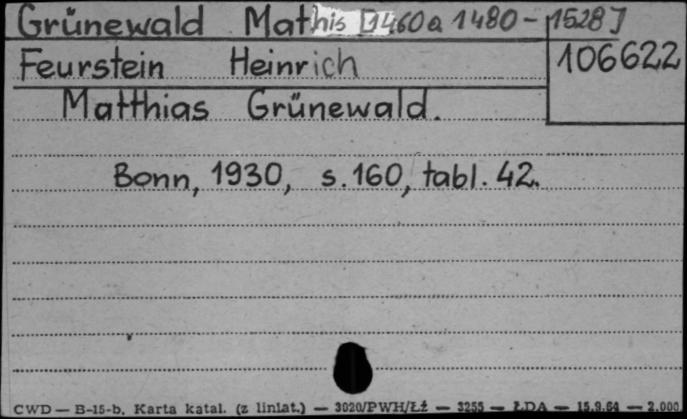 Grünewald Mathis [1460 a 1480 - 1528]
Feurstein Heinrich
106622
Matthias Grünewald.
Bonn, 1930, s. 160, tabl. 42.
CWD — B-15-b, Karta katal. (z liniat.) — 3020/PWH/ŁŻ — 3255 — ŁDA — 15.9.60 — 2.000